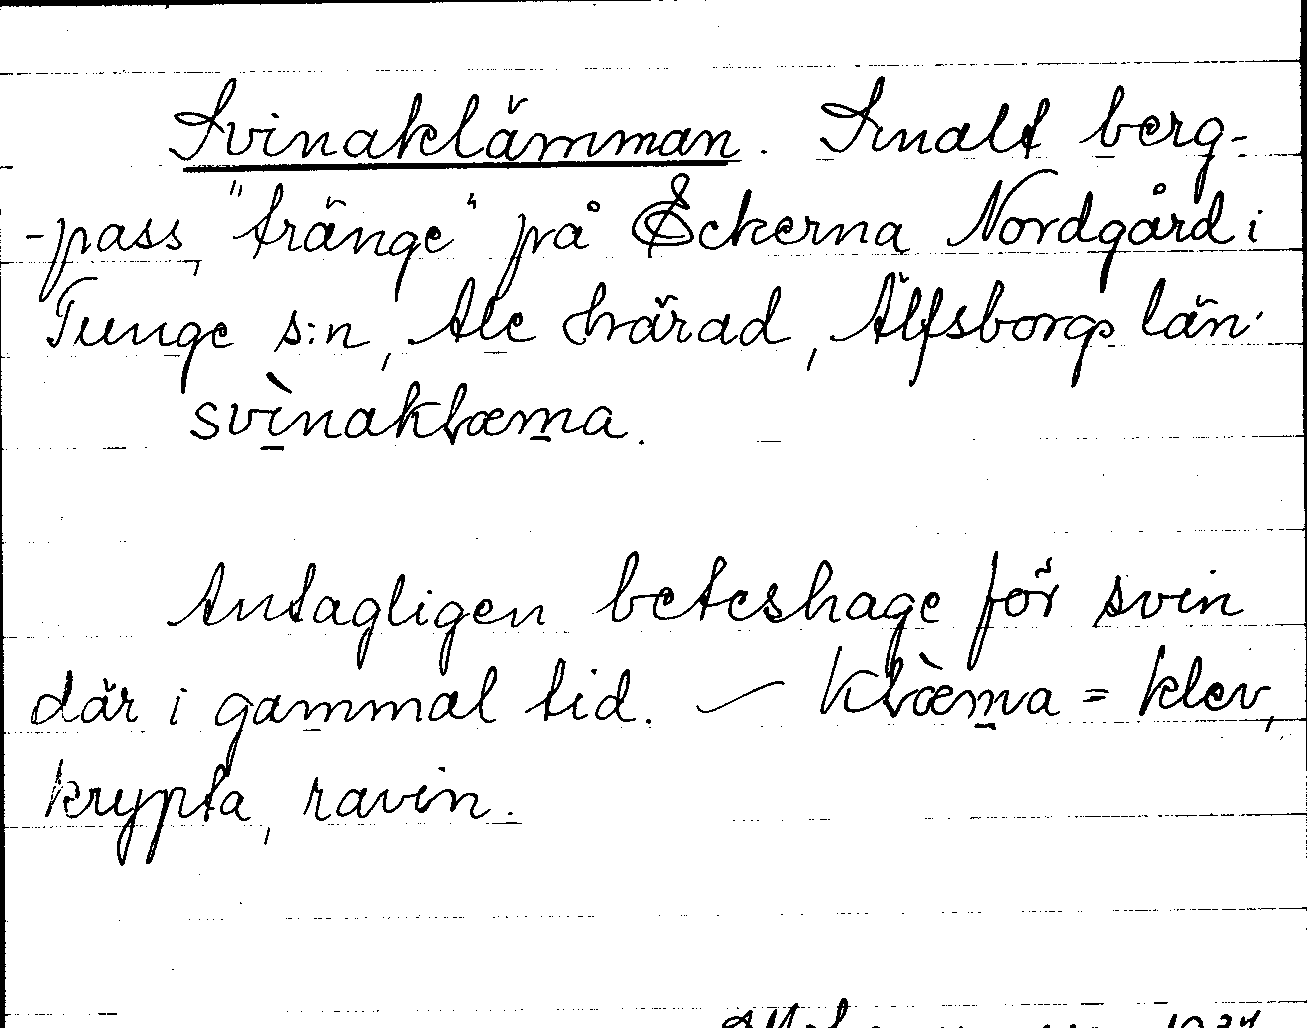 Svinaklämman. Smalt berg-
-pass, "tränge" på Eckerna Nordgård i
Tunge s:n, Ale härad, Älfsborgs län.
svìnaklæma.
Antagligen beteshage för svin
där i gammal tid. — Klæ̀ma = klev,
krypta, ravin.